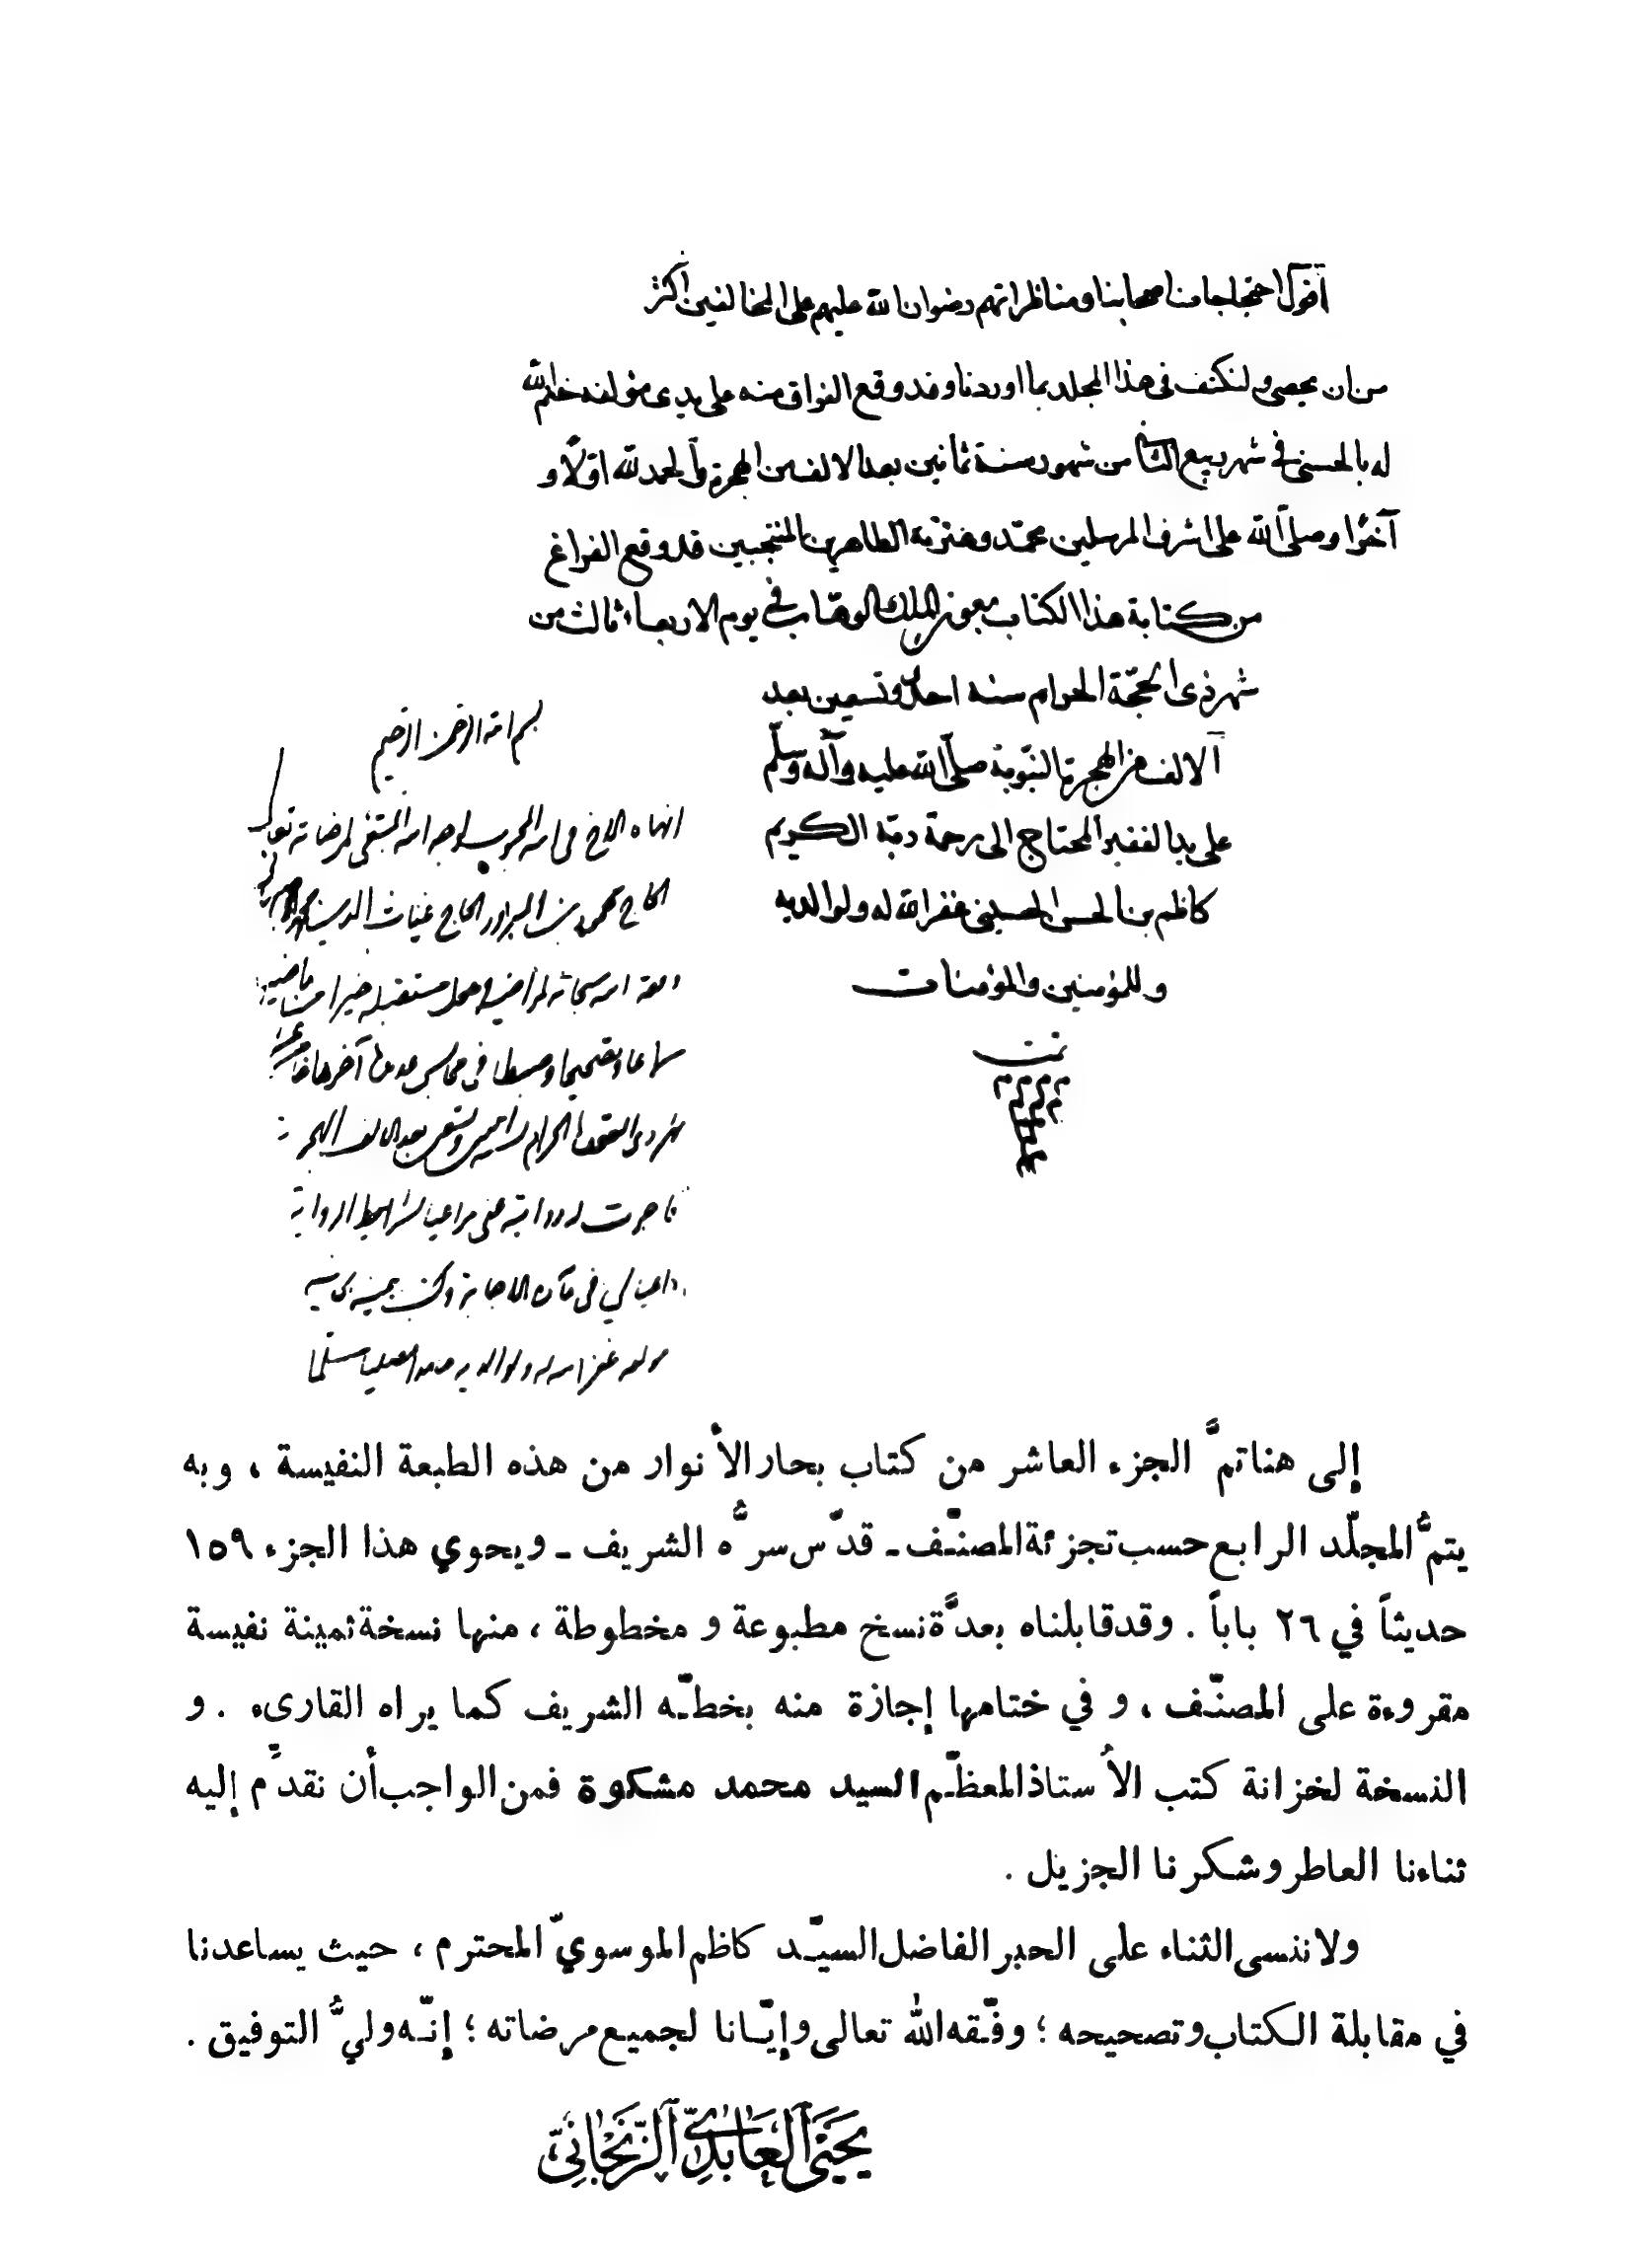 أقول احتجاجات أصحابنا ومناظراتهم رضوان الله عليهم على المخالفين أكثر
من ان يحصى ولنكتف فى هذا المجلد بما اوردنا وقد وقع الفراق منه على يدى مؤلفه ختم الله
له بالحسنى فى شهر ربيع الثانى من شهور سنة ثمانين بعد الالف من الهجرة والحمد لله اوّلاً و
آخرًا وصلى الله على اشرف المرسلين محمّد وعترته الطاهرين المنتجبين قد وقع الفراغ
من كتابة هذا الكتاب بعون الملك الوهّاب فى يوم الاربعاء ثالث من
شهر ذى الحجّة الحرام سنه احدى وتسعين بعد
الالف من الهجرة النبّوية صلّى الله عليه وآله وسلّم
على يد الفقير المحتاج الى رحمة ربّه الكريم
كاظم بن الحسن الحسينى غفر الله له ولوالديه
وللمؤمنين والمؤمنات
تمت
بسم الله الرحمن الرحيم
انهاه الاخ فى الله المحبوب لوجه الله المبتغى لمرضاته تعالى
الحاج محمود بن المبرور الحاج غياث الدين محمد
وفقه الله سبحانه لمراضيه وجعل مستقبله خيرا من ماضيه
سماعا وتصحيحا وضبطا فى مجالس عديدة آخرها
شهر ذى القعدة الحرام وتسعين بعد الالف الهجرية
فاجزت له روايته عنى مراعيا لشرايط الرواية
داعيا لى فى مآن الاجابة وكتب بيمينه
مؤلفه غفر الله له ولوالديه حامدا مصليا مسلما
إلى هنا تمَّ الجزء العاشر من كتاب بحار الأنوار من هذه الطبعة النفيسة ، وبه
يتمُّ المجلّد الرابع حسب تجزئة المصنّف ـ قدّس سرُّه الشريف ـ ويحوي هذا الجزء ١٥٩
حديثاً في ٢٦ باباً . وقد قابلناه بعدَّة نسخ مطبوعة و مخطوطة ، منها نسخة ثمينة نفيسة
مقروءة على المصنّف ، و في ختامها إجازة منه بخطّه الشريف كما يراه القارىء . و
النسخة لخزانة كتب الأُستاذ المعظّم السيد محمد مشكوة فمن الواجب أن نقدِّم إليه
ثناءنا العاطر وشكرنا الجزيل .
ولا ننسى الثناء على الحبر الفاضل السيّد كاظم الموسويّ المحترم ، حيث يساعدنا
في مقابلة الكتاب وتصحيحه ؛ وفّقه الله تعالى وإيّانا لجميع مرضاته ؛ إنّه وليُّ التوفيق .
يَحيَى العَابِدي الزَّنجَانِيّ